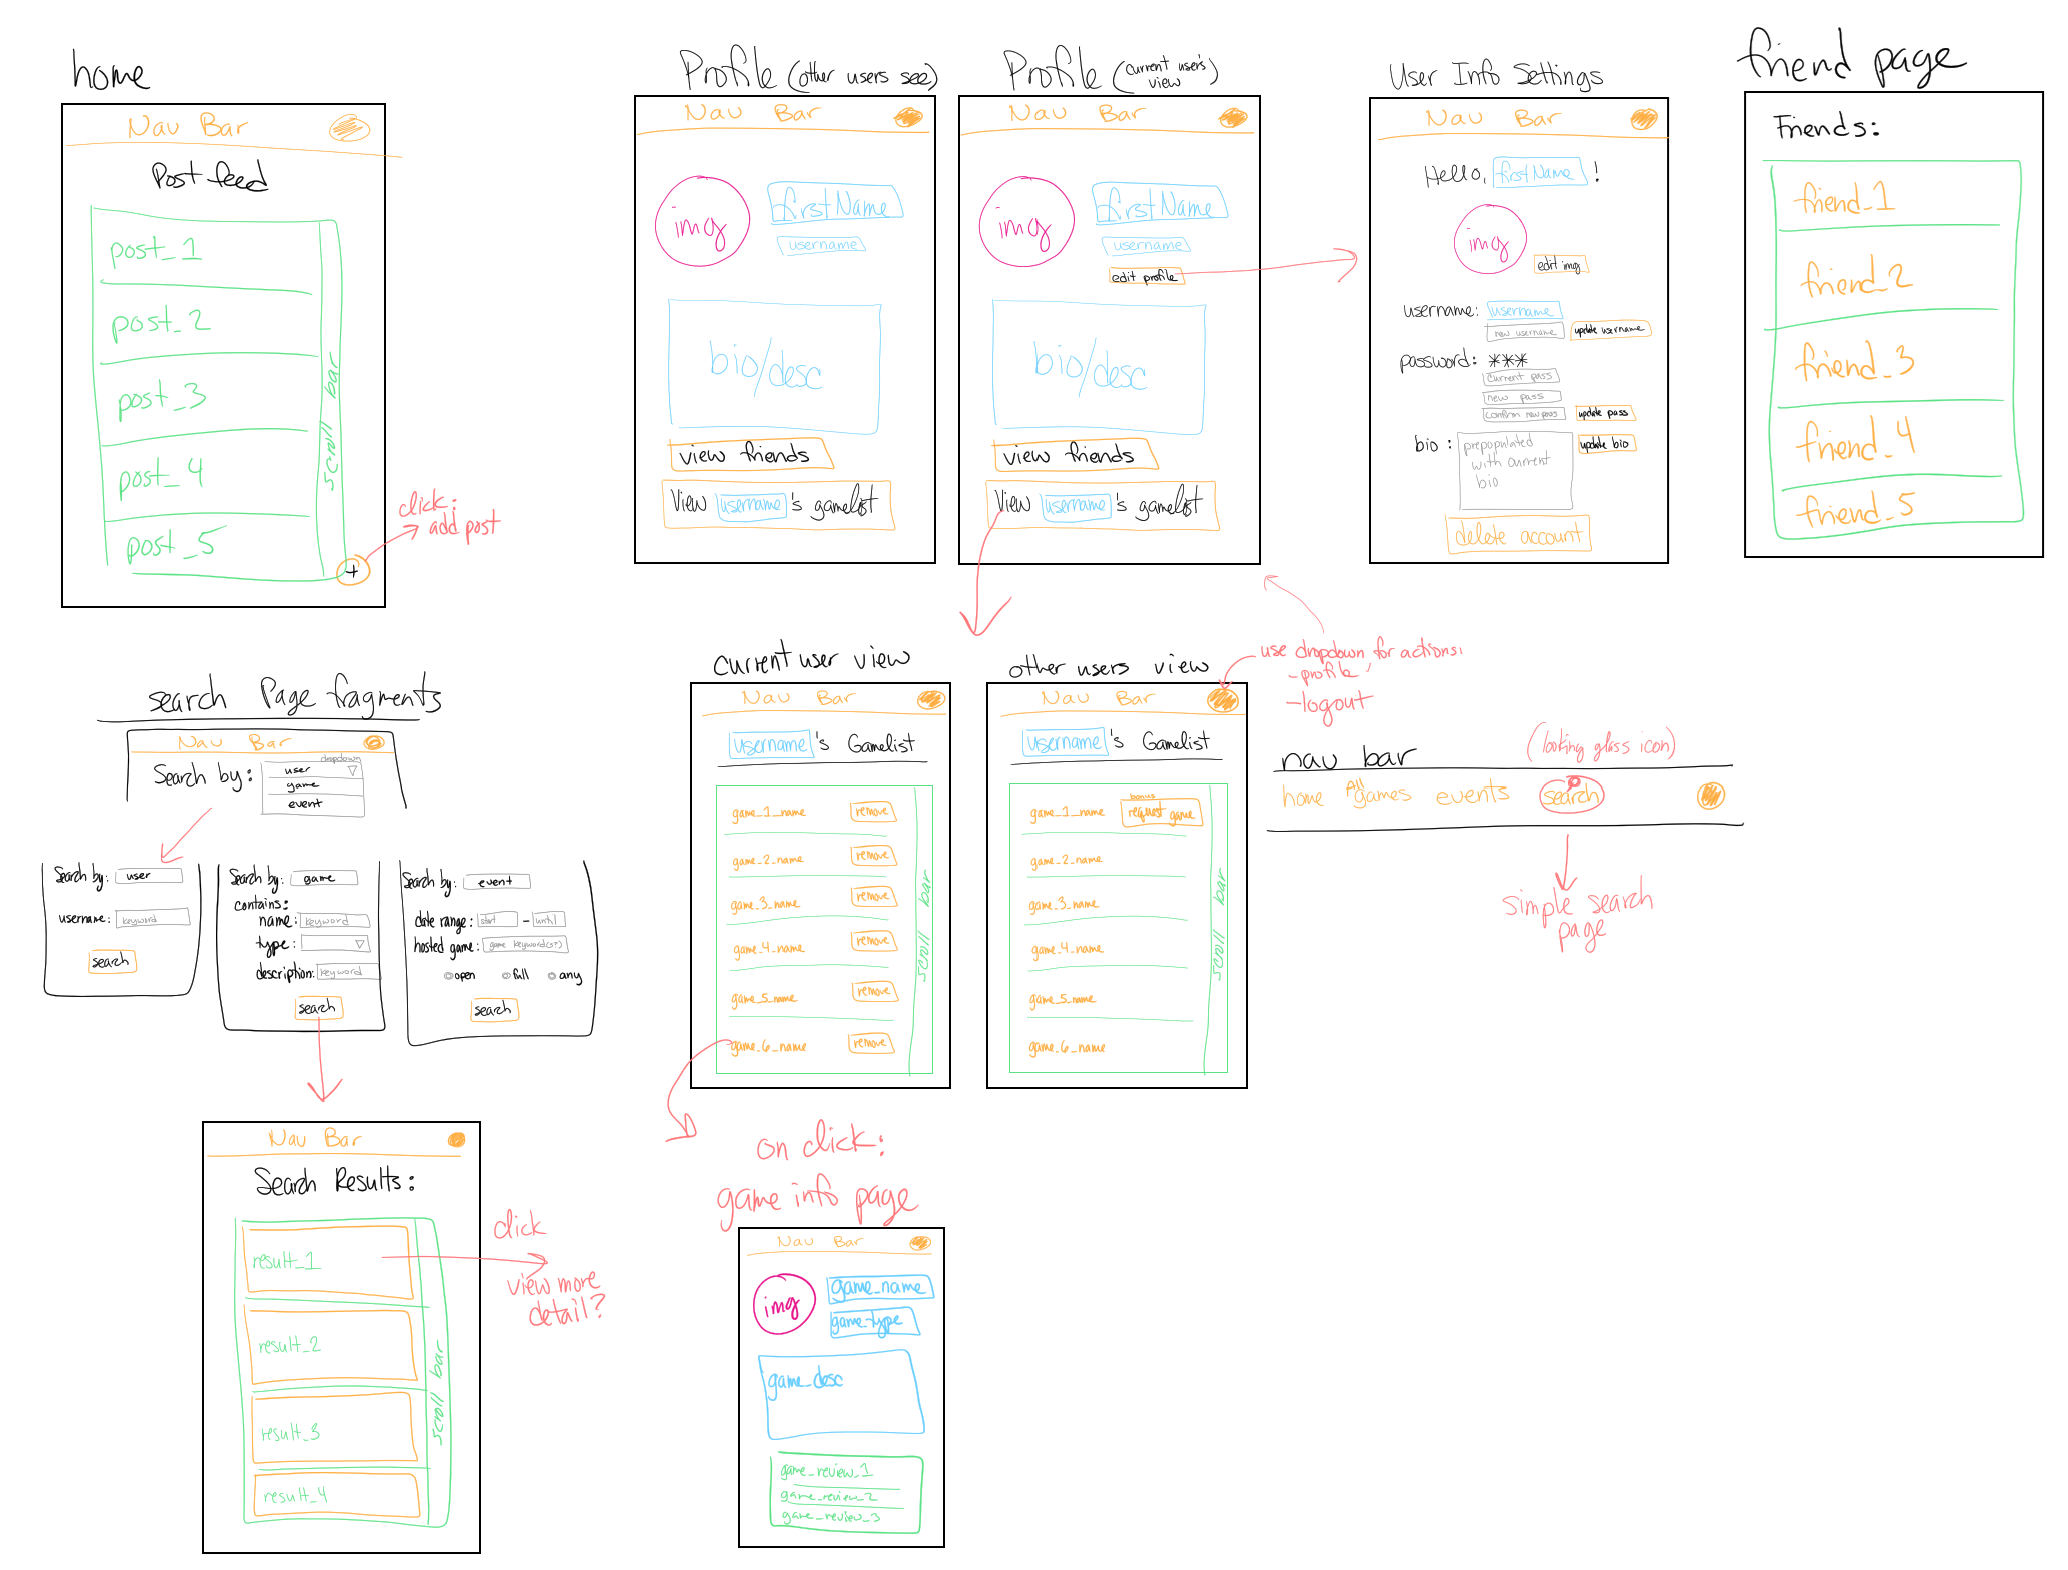 home
Nav Bar
Post feed
post_1
post_2
post_3
post_4
post_5
scroll bar
+
click:
add post
Profile (other users see)
Nav Bar
img
firstName
username
bio/desc
view friends
View username's gamelist
Profile (current user's view)
Nav Bar
img
firstName
username
edit profile
bio/desc
view friends
View username's gamelist
User Info Settings
Nav Bar
Hello, firstName!
img
edit img
username: username
new username update username
password: ***
current pass
new pass
confirm new pass update pass
bio: prepopulated update bio
with current
bio
delete account
friend page
Friends:
friend_1
friend_2
friend_3
friend_4
friend_5
search Page fragments
Nav Bar
dropdown
Search by: user
game
event
Search by: user
username: keyword
search
Search by: game
contains:
name: keyword
type:
description: keyword
search
Search by: event
date range: start - until
hosted game: game keyword(s?)
open full any
search
Nav Bar
Search Results:
result_1
result_2
result_3
result_4
scroll bar
click
view more
detail?
current user view
Nav Bar
username's Gamelist
game_1_name remove
game_2_name remove
game_3_name remove
game_4_name remove
game_5_name remove
game_6_name remove
scroll bar
other users view
Nav Bar
username's Gamelist
bonus
game_1_name request game
game_2_name
game_3_name
game_4_name
game_5_name
game_6_name
scroll bar
use dropdown for actions:
-profile
-logout
nav bar
(looking glass icon)
home All games events search
simple search
page
on click:
game info page
Nav Bar
img
game_name
game_type
game_desc
game_review_1
game_review_2
game_review_3